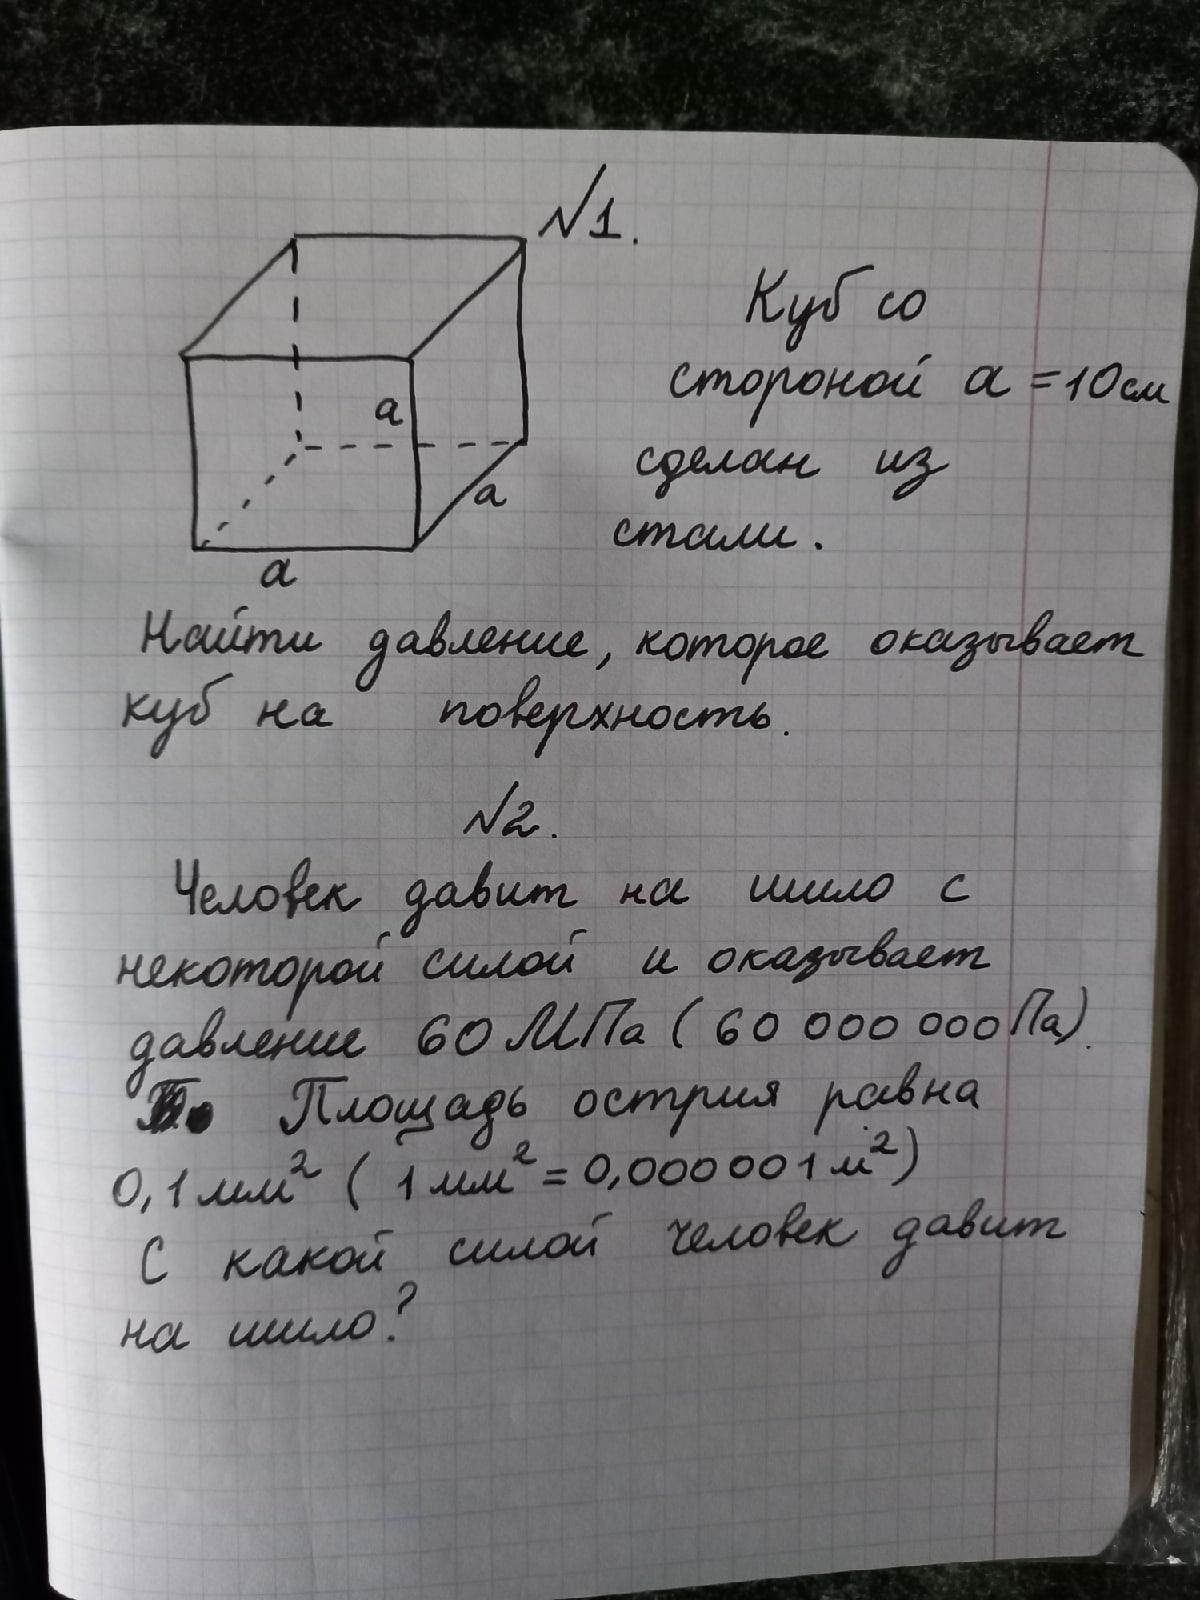 №1.
Куб со
стороной a = 10 см
сделан из
стали.
a
a
a
Найти давление, которое оказывает
куб на поверхность.
№2.
Человек давит на шило с
некоторой силой и оказывает
давление 60 МПа (60 000 000 Па).
Площадь острия равна
0,1 мм² (1 мм² = 0,000001 м²)
С какой силой человек давит
на шило?